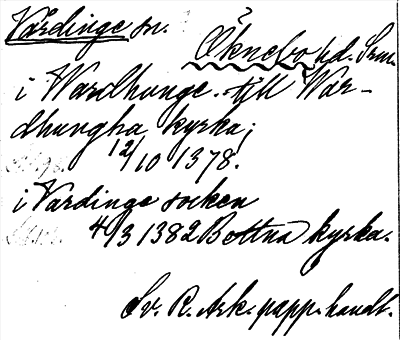 Vårdinge sn.
Öknebo hd. Srm.
i Wardhunge. till War-
dhungha kyrka;
12/10 1378.
i Vardinge socken
4/3 1382 Bottna kyrka.
Sv. R. Ark. papp. handl.